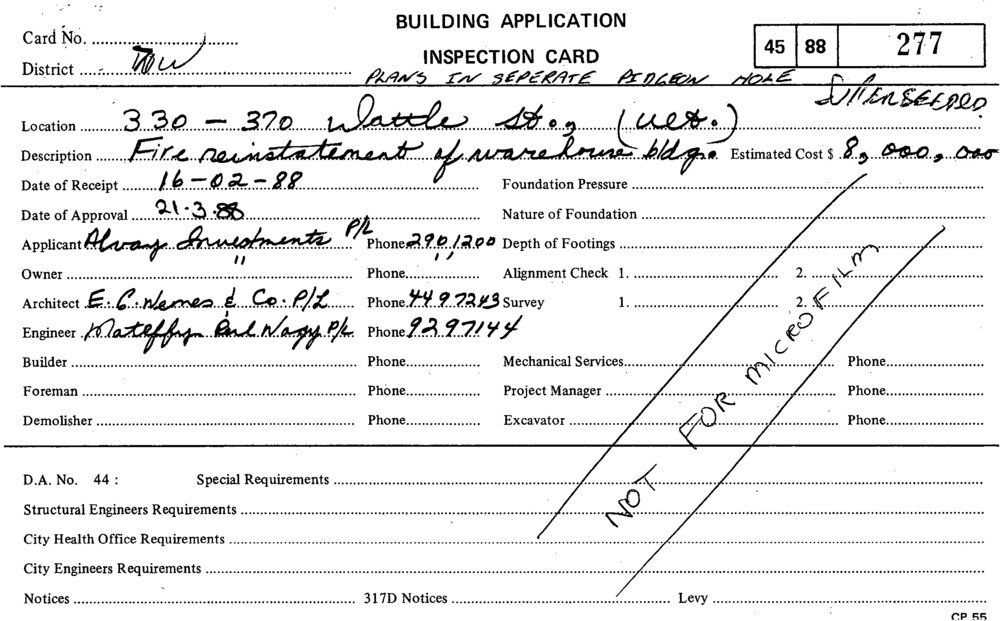 BUILDING APPLICATION
Card No.
INSPECTION CARD
45 88 277
District
PLANS IN SEPERATE PIDGEON HOLE
SUPERSEEDED.
Location 330 - 370 Wattle St., (Ult.)
Description Fire reinstatement of warehouse bldgs. Estimated Cost $ 8,000,000
Date of Receipt 16-02-88 Foundation Pressure
Date of Approval 21.3.88 Nature of Foundation
Applicant Investments P/L Phone 290 1200 Depth of Footings
Owner " Phone " Alignment Check 1. 2.
Architect E. C. Nemes & Co. P/L Phone 4497243 Survey 1. 2.
Engineer P/L Phone 9297144
Builder Phone Mechanical Services Phone
Foreman Phone Project Manager Phone
Demolisher Phone Excavator Phone
NOT FOR MICROFILM
D.A. No. 44 : Special Requirements
Structural Engineers Requirements
City Health Office Requirements
City Engineers Requirements
Notices 317D Notices Levy
CP 55